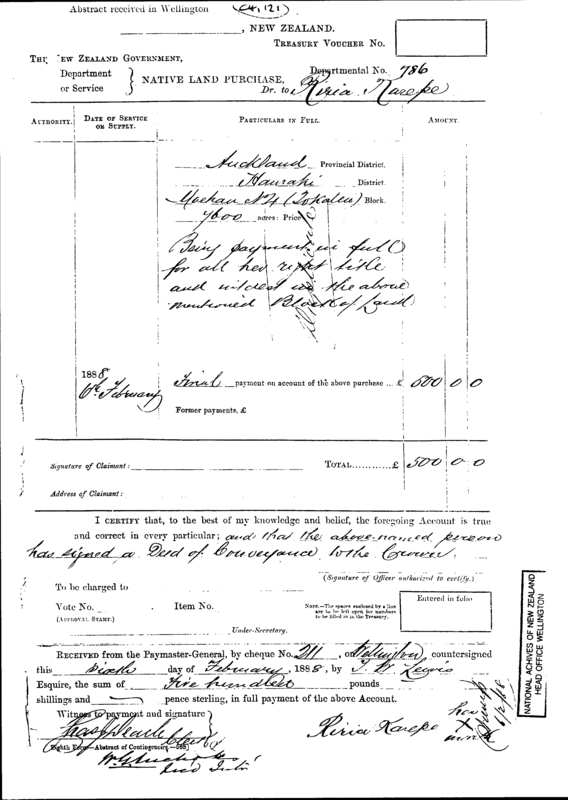 Abstract received in Wellington (C4,121)
, NEW ZEALAND.
TREASURY VOUCHER No.
THE NEW ZEALAND GOVERNMENT,
Department or Service } NATIVE LAND PURCHASE,
Departmental No. 786
Dr. to Riria Karepe
AUTHORITY. DATE OF SERVICE OR SUPPLY. PARTICULARS IN FULL. AMOUNT.
Auckland Provincial District.
Hauraki District.
Moehau N4 Block.
7600 acres: Price
Being payment in full
for all her right title
and interest in the above
mentioned Block of Land
1888,
6th February
Final payment on account of the above purchase ... £ 500 0 0
Former payments, £
Signature of Claimant: TOTAL............£ 500 0 0
Address of Claimant:
I CERTIFY that, to the best of my knowledge and belief, the foregoing Account is true
and correct in every particular; and that the above-named person
has signed a Deed of Conveyance to the Crown.
(Signature of Officer authorized to certify.)
To be charged to
Vote No. Item No.
(APPROVAL STAMP.)
NOTE.—The spaces enclosed by a line are to be left open for numbers to be filled in in the Treasury.
Entered in folio
Under-Secretary.
RECEIVED from the Paymaster-General, by cheque No. 211, on Wellington, countersigned
this sixth day of February, 1888, by T. W. Lewis
Esquire, the sum of Five hundred pounds
shillings and pence sterling, in full payment of the above Account.
Witness to payment and signature
Riria Karepe her x mark
Clerk
Eighth Form—Abstract of Contingencies.—888]
NATIONAL ARCHIVES OF NEW ZEALAND
HEAD OFFICE WELLINGTON